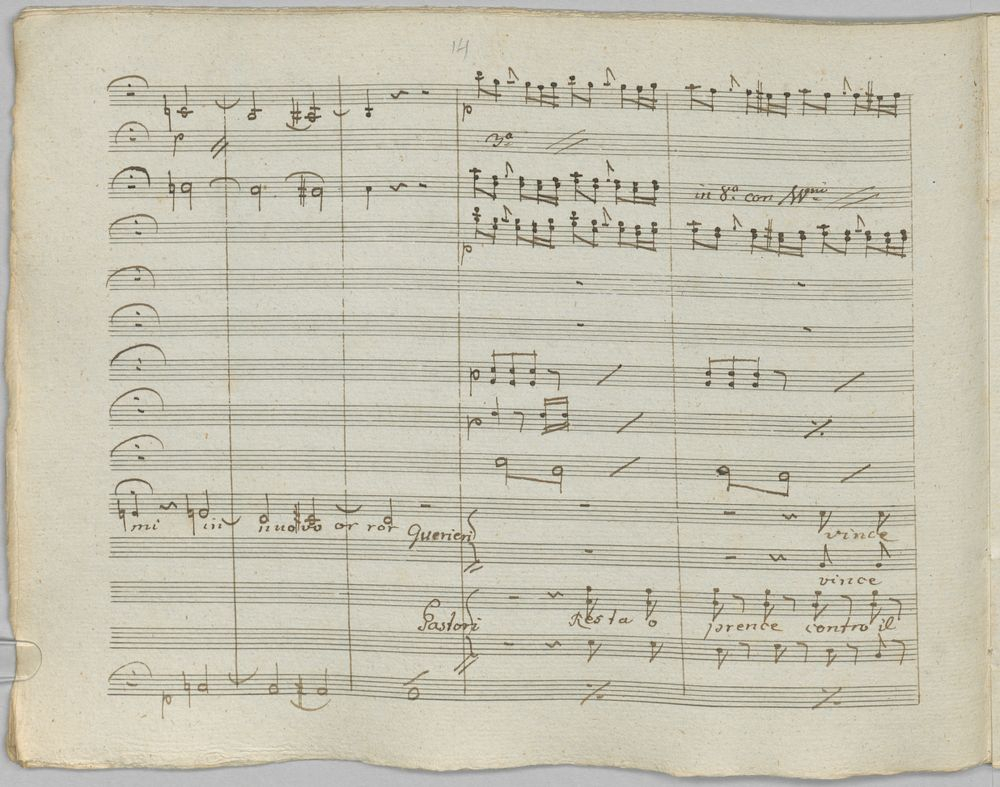 14
p p
p 3ª
in 8ª con VVni
p
p
p
mi in nuovo or ror
Querieri vince
vince
Pastori Resta o prence contro il
p